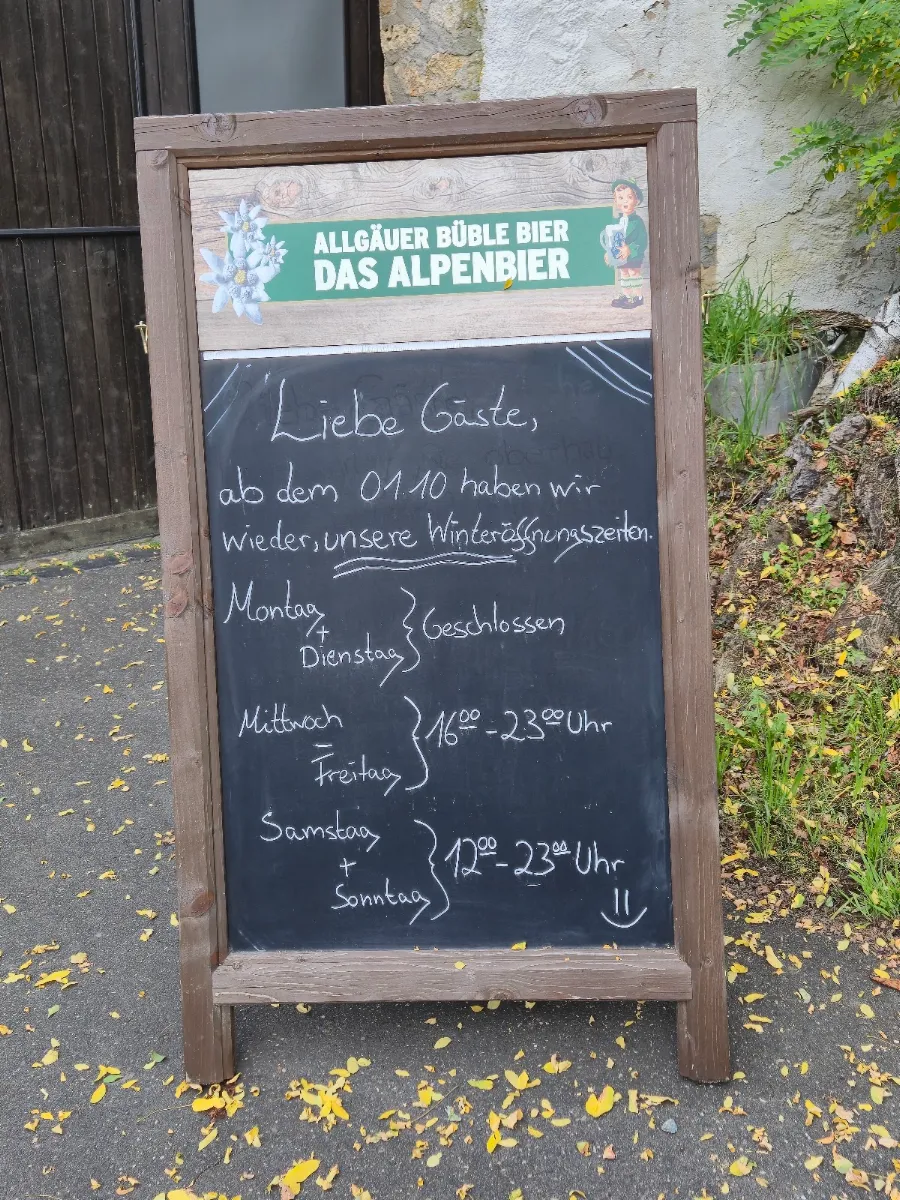 ALLGÄUER BÜBLE BIER
DAS ALPENBIER
Liebe Gäste,
ab dem 01.10 haben wir
wieder, unsere Winteröffnungszeiten.
Montag
+
Dienstag } Geschlossen
Mittwoch
–
Freitag } 16⁰⁰ - 23⁰⁰ Uhr
Samstag
+
Sonntag } 12⁰⁰ - 23⁰⁰ Uhr